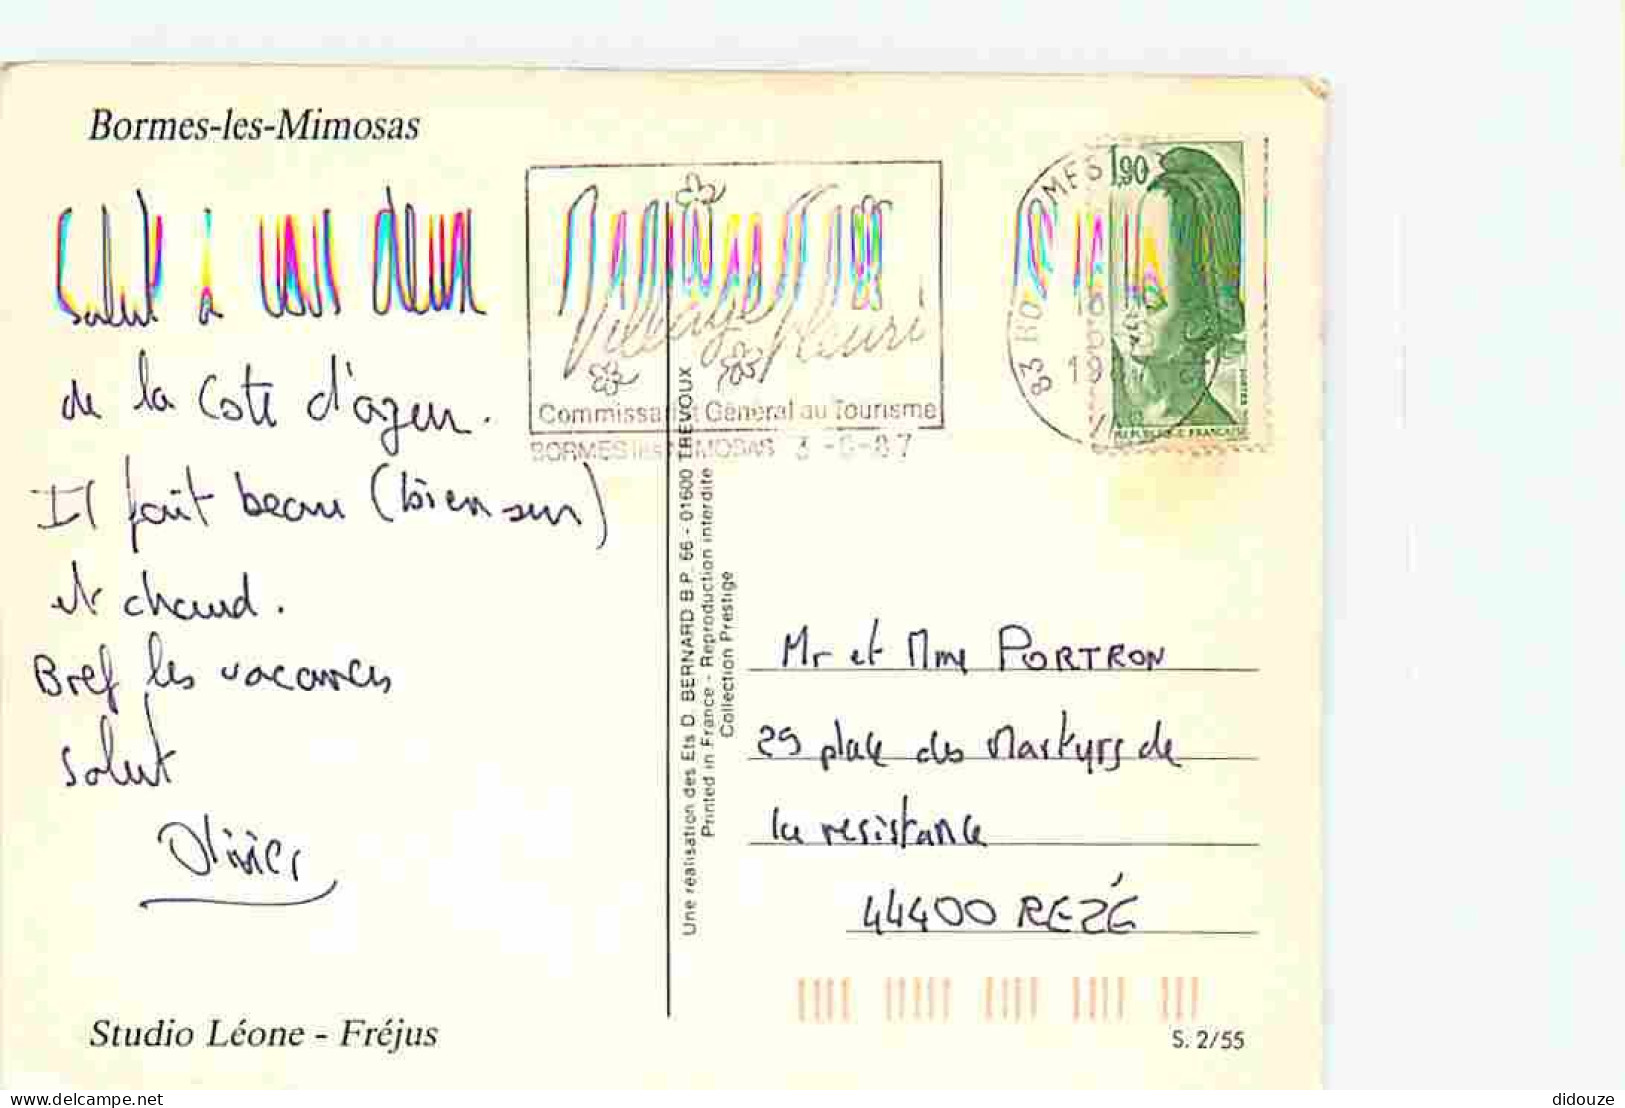 Bormes-les-Mimosas
Salut à vous deux
de la Cote d'azur.
Il fait beau (bien sur)
et chaud.
Bref les vacances
Salut
Olivier
Studio Léone - Fréjus
Village Fleuri
Commissariat Général au Tourisme
BORMES les MIMOSAS 3-6-87
83 BORMES
19
1,90
REPUBLIQUE FRANÇAISE
Une réalisation des Ets D. BERNARD B.P. 66 - 01600 TREVOUX
Printed in France - Reproduction interdite
Collection Prestige
Mr et Mme PORTRON
29 place des Martyrs de
la resistance
44400 REZÉ
S. 2/55
delcampe.net
didouze